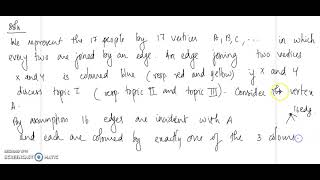 Soln
We represent the 17 people by 17 vertices A, B, C, ... in which
every two are joined by an edge. An edge joining two vertices
X and Y is coloured blue (resp. red and yellow) if X and Y
discuss topic I (resp. topic II and topic III). Consider the vertex
A.
16 edg
By assumption 16 edges are incident with A
and each are coloured by exactly one of the 3 colours
RECORDED WITH
SCREENCAST MATIC